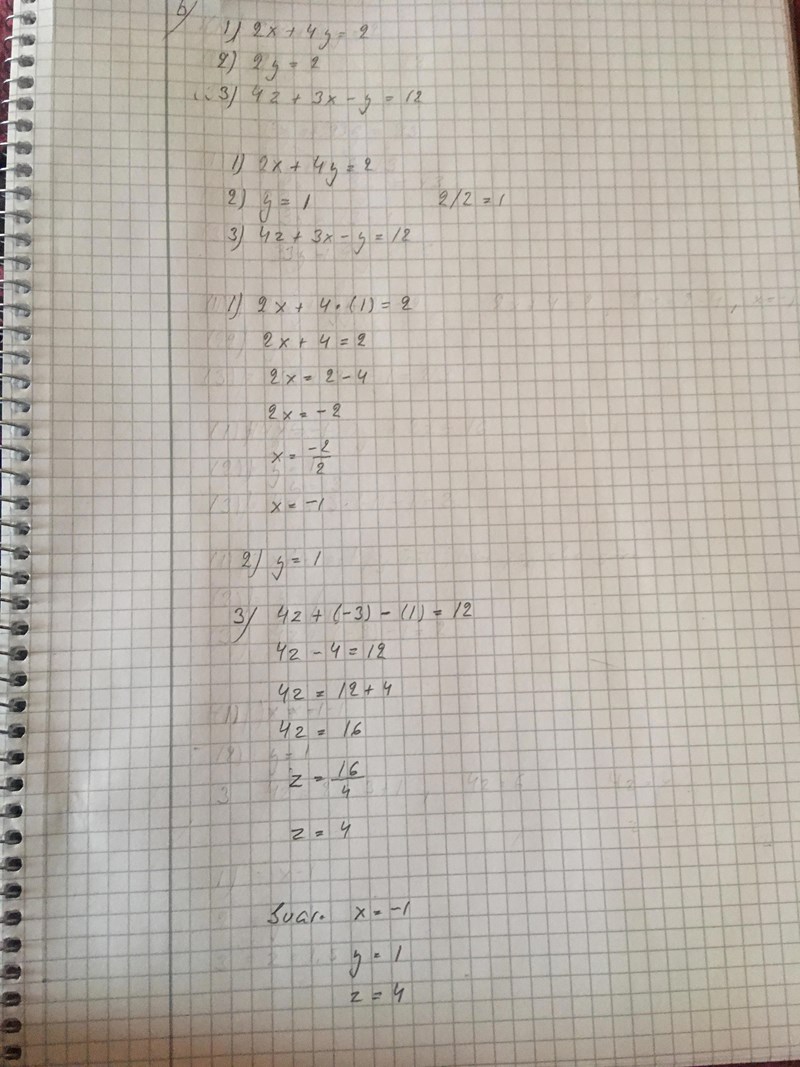 b)
1) 2x + 4y = 2
2) 2y = 2
3) 4z + 3x - y = 12
1) 2x + 4y = 2
2) y = 1 2/2 = 1
3) 4z + 3x - y = 12
1) 2x + 4 · (1) = 2
2x + 4 = 2
2x = 2 - 4
2x = -2
x = -2/2
x = -1
2) y = 1
3) 4z + (-3) - (1) = 12
4z - 4 = 12
4z = 12 + 4
4z = 16
z = 16/4
z = 4
Svar. x = -1
y = 1
z = 4